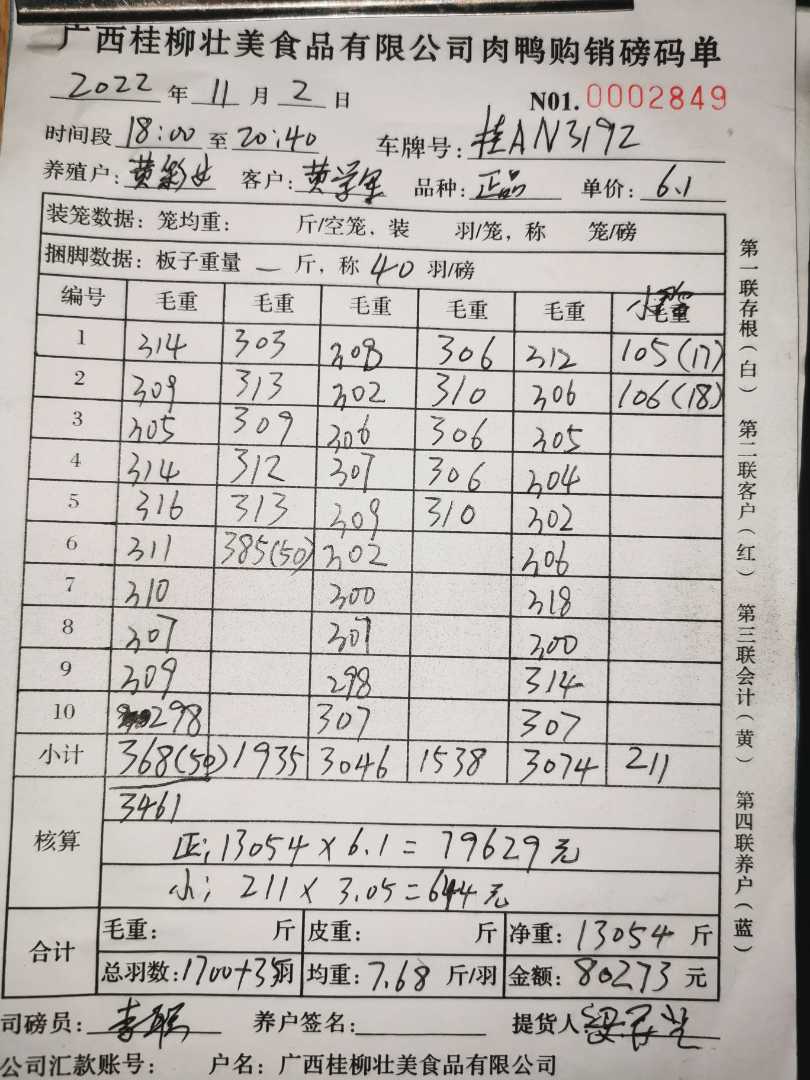 广西桂柳壮美食品有限公司肉鸭购销磅码单
2022 年 11 月 2 日 N01. 0002849
时间段 18:00 至 20:40 车牌号: 桂AN3192
养殖户: 客户: 品种: 正品 单价: 6.1
装笼数据: 笼均重: 斤/空笼, 装 羽/笼, 称 笼/磅
捆脚数据: 板子重量 — 斤, 称 40 羽/磅
编号 毛重 毛重 毛重 毛重 毛重 毛重
1 314 303 308 306 312 105(17)
2 309 313 302 310 306 106(18)
3 305 309 306 306 305
4 314 312 307 306 304
5 316 313 309 310 302
6 311 385(50) 302 306
7 310 300 318
8 307 307 300
9 309 298 314
10 298 307 307
小计 368(50) 1935 3046 1538 3074 211
核算
3461
正; 13054 × 6.1 = 79629元
小; 211 × 3.05 = 644元
合计
毛重: 斤 皮重: 斤 净重: 13054 斤
总羽数: 1700+35羽 均重: 7.68 斤/羽 金额: 80273 元
司磅员: 养户签名: 提货人
公司汇款账号: 户名: 广西桂柳壮美食品有限公司
第一联存根(白) 第二联客户(红) 第三联会计(黄) 第四联养户(蓝)